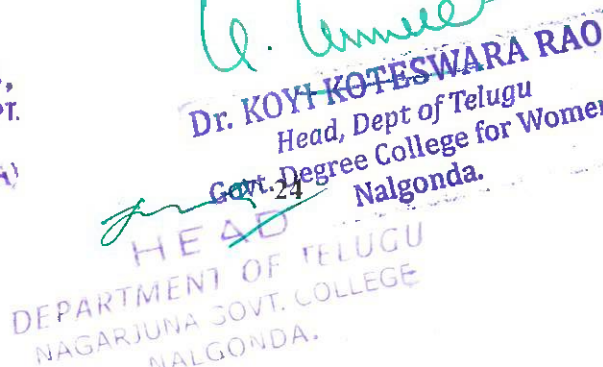 PT.
Dr. KOYI KOTESWARA RAO
Head, Dept of Telugu
Govt. Degree College for Women
Nalgonda.
24
HEAD
DEPARTMENT OF TELUGU
NAGARJUNA GOVT. COLLEGE
NALGONDA.